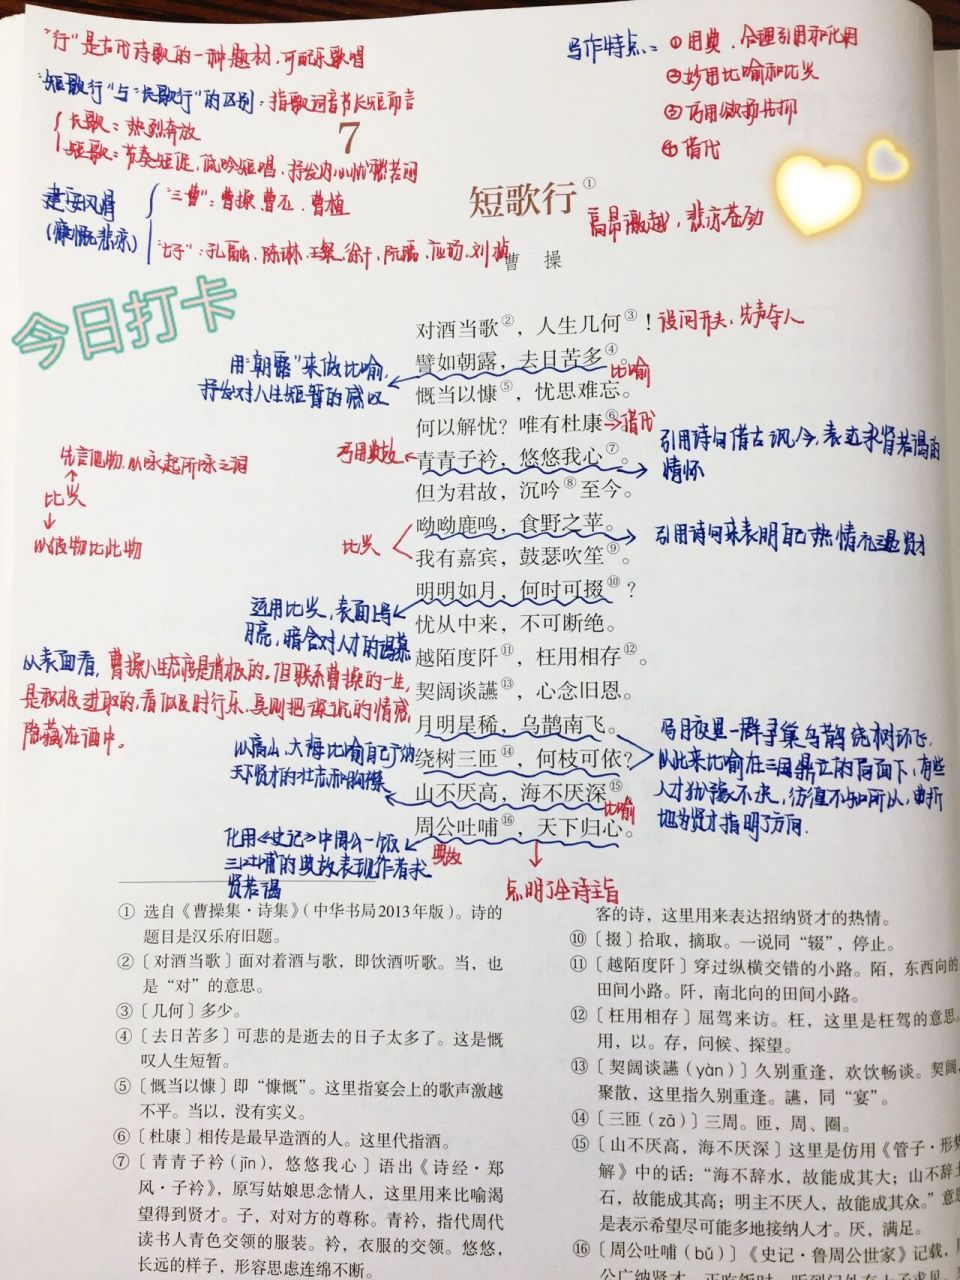 “行”是古代诗歌的一种题材,可配乐歌唱
“短歌行”与“长歌行”的区别:指歌词音节长短而言
长歌:热烈奔放
短歌:节奏短促,低吟短唱,抒发内心忧愁苦闷
建安风骨
(慷慨悲凉)
“三曹”:曹操、曹丕、曹植
“七子”:孔融、陈琳、王粲、徐干、阮瑀、应玚、刘桢
写作特点:①用典,合理引用和化用
②妙用比喻和比兴
③巧用欲扬先抑
④借代
7
短歌行①
高昂激越,悲凉苍劲
曹 操
今日打卡
对酒当歌②,人生几何③!
设问开头,先声夺人
譬如朝露,去日苦多④。
比喻
用“朝露”来做比喻,
抒发对人生短暂的感叹
慨当以慷⑤,忧思难忘。
何以解忧?唯有杜康⑥。
借代
青青子衿,悠悠我心⑦。
巧用典故
引用诗句借古讽今,表达求贤若渴的
情怀
但为君故,沉吟⑧至今。
呦呦鹿鸣,食野之苹。
引用诗句来表明自己热情礼遇贤才
我有嘉宾,鼓瑟吹笙⑨。
比兴
先言他物,以咏起所咏之词
比兴
以彼物比此物
明明如月,何时可掇⑩?
运用比兴,表面上写
月亮,暗含对人才的渴慕
忧从中来,不可断绝。
越陌度阡⑪,枉用相存⑫。
契阔谈讌⑬,心念旧恩。
从表面看,曹操人生态度是消极的。但联系曹操的一生,
是积极进取的,看似及时行乐,实则把深沉的情感
隐藏在酒中。
月明星稀,乌鹊南飞。
绕树三匝⑭,何枝可依?
写月夜里一群寻巢乌鹊绕树环飞,
以此来比喻在三国鼎立的局面下,有些
人才犹豫不决,彷徨不知所从,曲折
地为贤才指明了方向.
山不厌高,海不厌深⑮。
比喻
以高山、大海比喻自己广纳
天下贤才的壮志和胸襟
周公吐哺⑯,天下归心。
典故
化用《史记》中周公一饭
三吐哺的典故表现作者求
贤若渴
点明了全诗主旨
① 选自《曹操集·诗集》(中华书局2013年版)。诗的
题目是汉乐府旧题。
②〔对酒当歌〕面对着酒与歌,即饮酒听歌。当,也
是“对”的意思。
③〔几何〕多少。
④〔去日苦多〕可悲的是逝去的日子太多了。这是慨
叹人生短暂。
⑤〔慨当以慷〕即“慷慨”。这里指宴会上的歌声激越
不平。当以,没有实义。
⑥〔杜康〕相传是最早造酒的人。这里代指酒。
⑦〔青青子衿(jīn),悠悠我心〕语出《诗经·郑
风·子衿》,原写姑娘思念情人,这里用来比喻渴
望得到贤才。子,对对方的尊称。青衿,指代周代
读书人青色交领的服装。衿,衣服的交领。悠悠,
长远的样子,形容思虑连绵不断。
客的诗,这里用来表达招纳贤才的热情。
⑩〔掇〕拾取,摘取。一说同“辍”,停止。
⑪〔越陌度阡〕穿过纵横交错的小路。陌,东西向的
田间小路。阡,南北向的田间小路。
⑫〔枉用相存〕屈驾来访。枉,这里是枉驾的意思。
用,以。存,问候、探望。
⑬〔契阔谈讌(yàn)〕久别重逢,欢饮畅谈。契阔,
聚散,这里指久别重逢。讌,同“宴”。
⑭〔三匝(zā)〕三周。匝,周、圈。
⑮〔山不厌高,海不厌深〕这里是仿用《管子·形势
解》中的话:“海不辞水,故能成其大;山不辞土
石,故能成其高;明主不厌人,故能成其众。”意思
是表示希望尽可能多地接纳人才。厌,满足。
⑯〔周公吐哺(bǔ)〕《史记·鲁周公世家》记载,